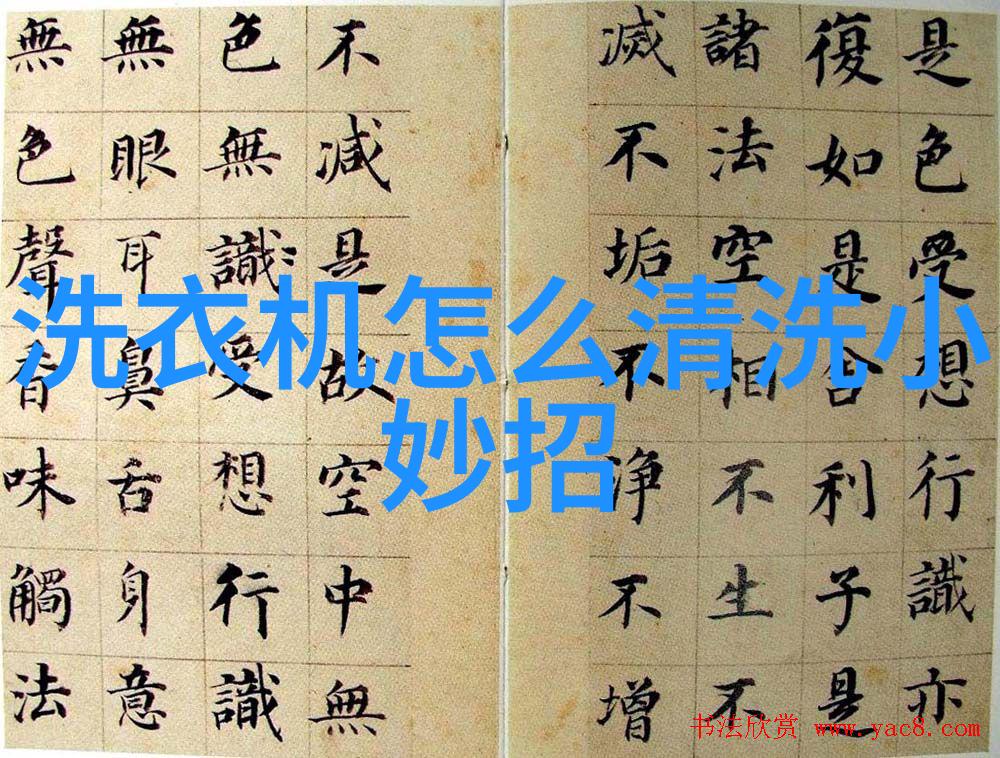 洗衣机怎么清洗小
妙招
是色受想行識亦
復如是舍利子是
諸法空相不生不
滅不垢不净不增
不減是故空中無
色無識受想行識
無眼耳鼻舌身意
無色聲香味觸法
书法欣赏 www.yac8.com